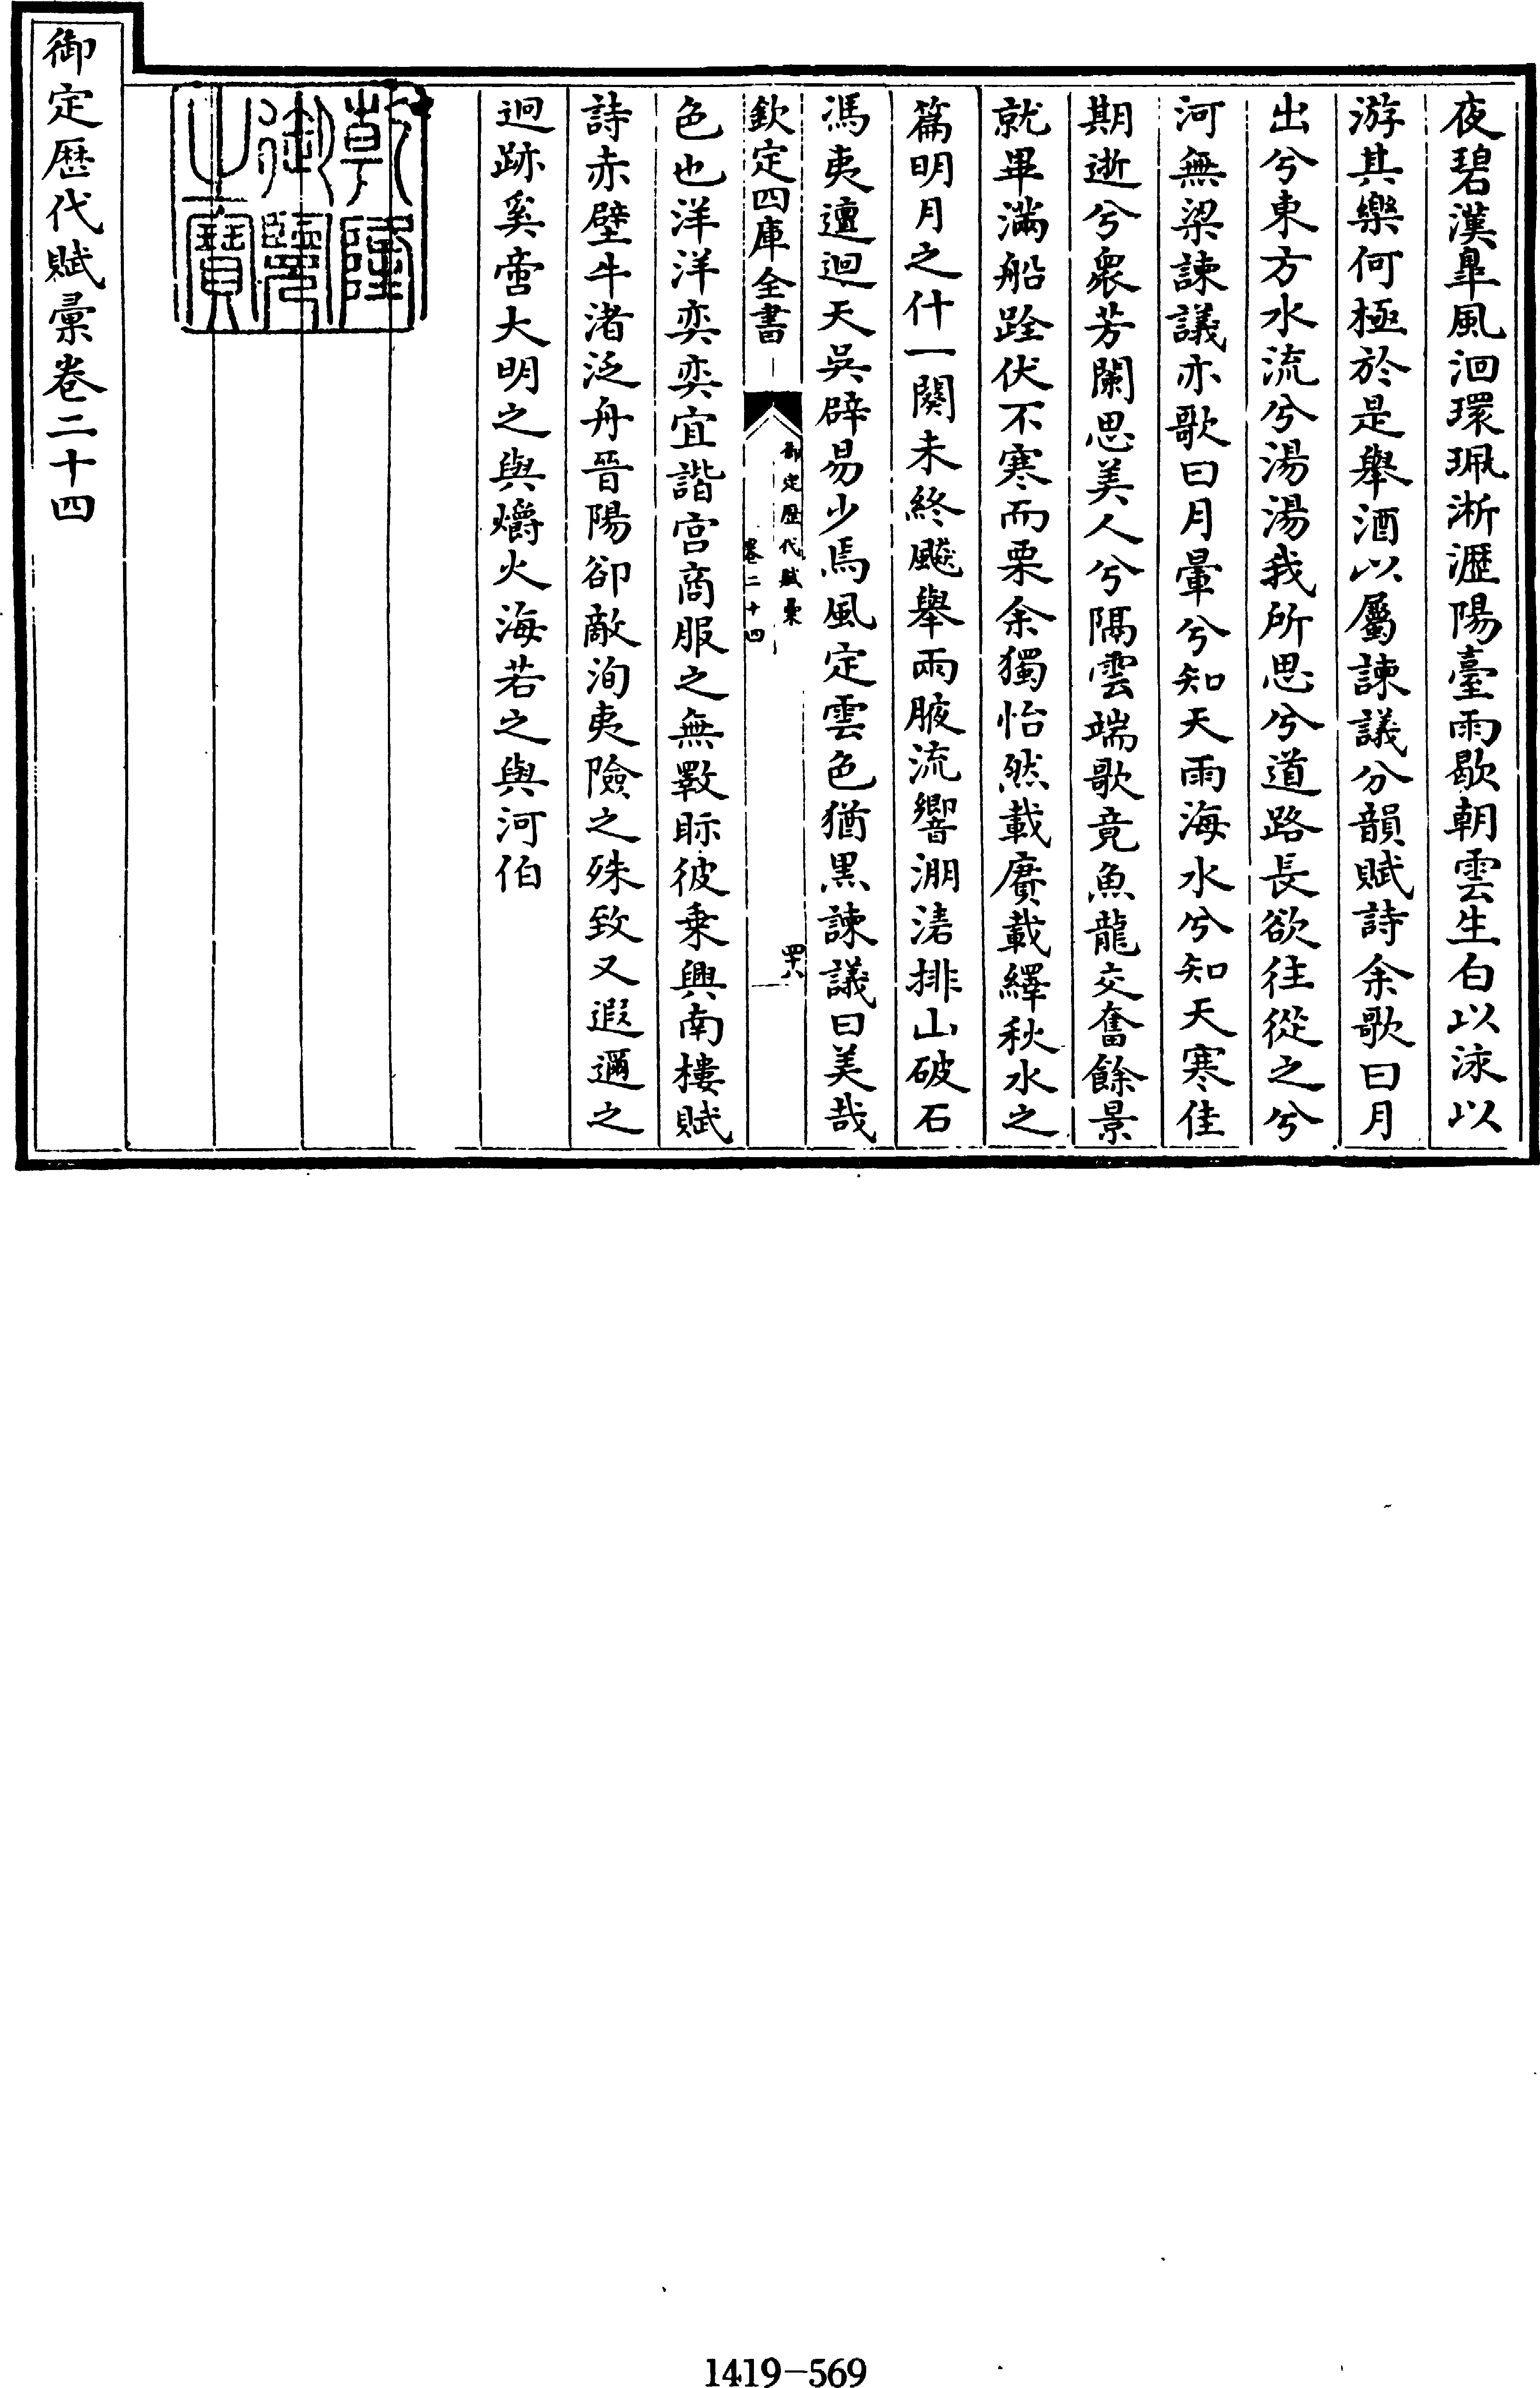 夜碧漢臯風洄環珮淅瀝陽臺雨歇朝雲生白以泳以
游其樂何極於是舉酒以屬諫議分韻賦詩余歌曰月
出兮東方水流兮湯湯我所思兮道路長欲往從之兮
河無梁諫議亦歌曰月暈兮知天雨海水兮知天寒佳
期逝兮衆芳闌思美人兮隔雲端歌竟魚龍交奮餘景
就畢滿船跧伏不寒而栗余獨怡然載賡載繹秋水之
篇明月之什一闋未終颷舉兩腋流響淜渃排山破石
馮夷邅迴天吳辟易少焉風定雲色猶黑諫議曰美哉
欽定四庫全書
御定歷代賦彙
卷二十四
四六
色也洋洋奕奕宜諧宮商服之無斁眎彼乗興南樓賦
詩赤壁牛渚泛舟晉陽卻敵洵夷險之殊致又遐邇之
迥跡奚啻大明之與爝火海若之與河伯
乾隆御覽之寶
御定歷代賦彙卷二十四
1419-569